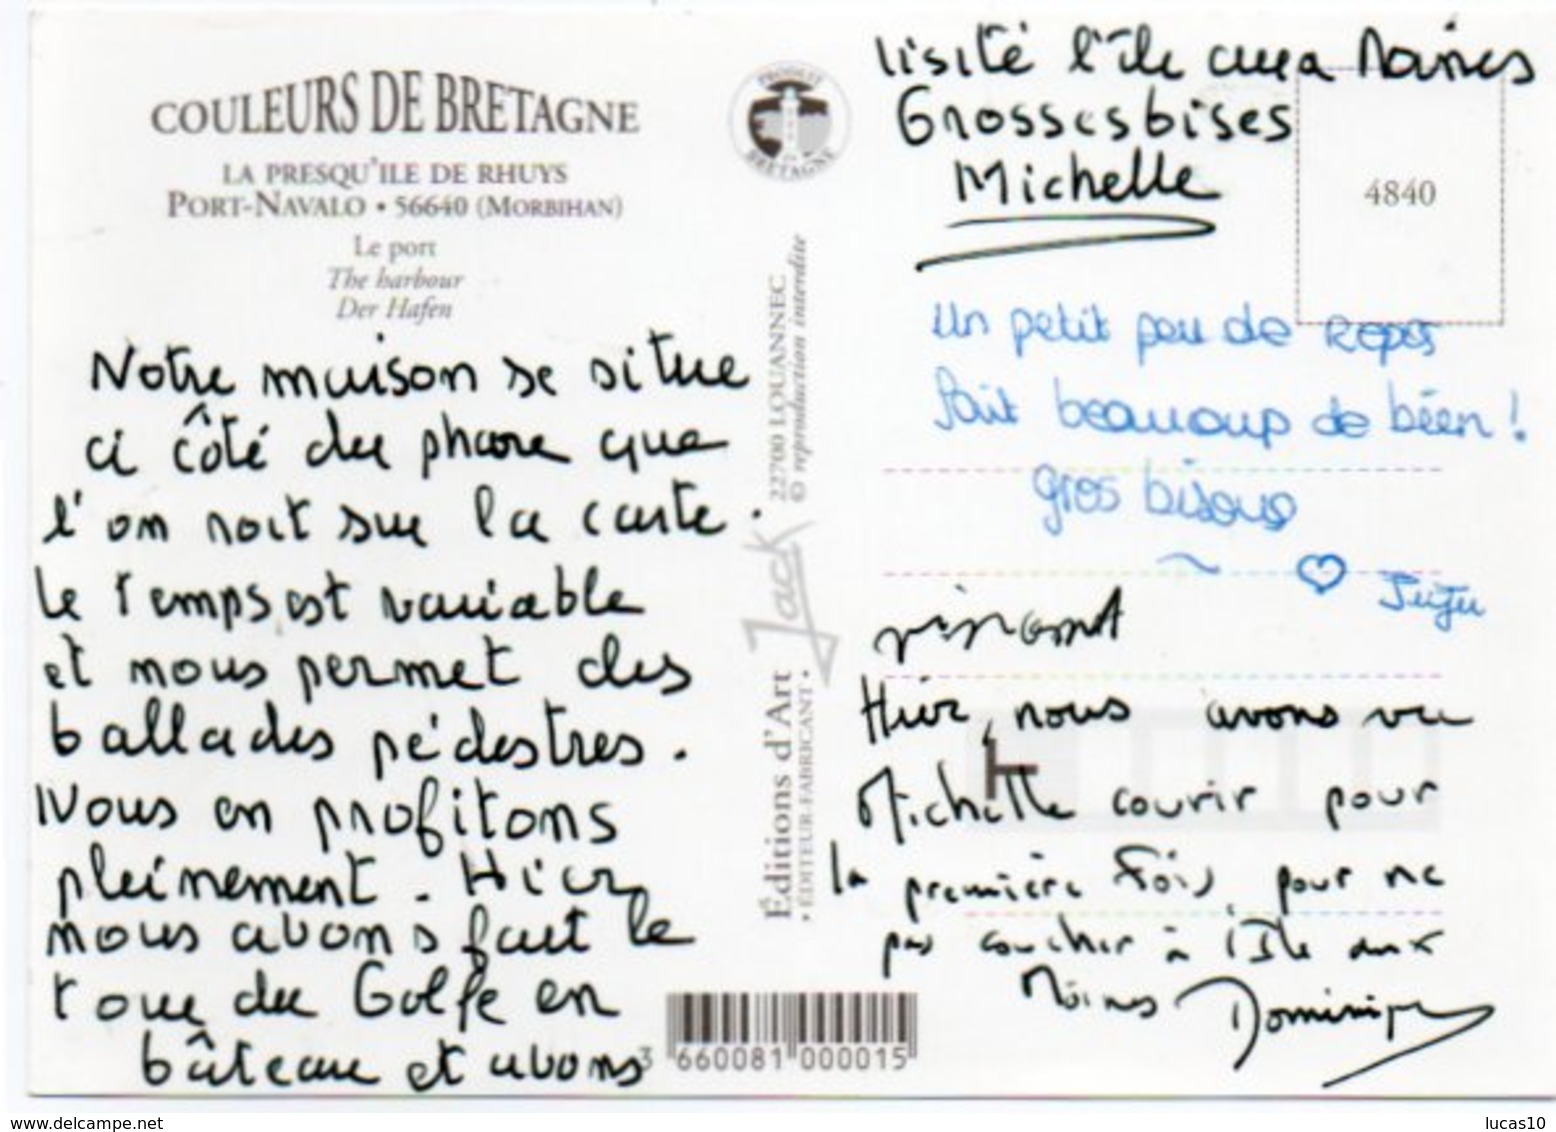 COULEURS DE BRETAGNE
LA PRESQU'ILE DE RHUYS
PORT-NAVALO • 56640 (MORBIHAN)
Le port
The harbour
Der Hafen
Notre maison se situe
à côté du phare que
l'on voit sur la carte.
Le Temps est variable
et nous permet des
ballades pédestres.
Nous en profitons
pleinement. Hier
nous avons fait le
tour du Golfe en
bâteau et avons
PRODUIT
EN
BRETAGNE
22700 LOUANNEC
© reproduction interdite
Jack
Éditions d'Art
• ÉDITEUR-FABRICANT •
3 660081 000015
visité l'île aux Moines
Grosses bises
Michelle
4840
Un petit peu de repos
fait beaucoup de bien !
gros bisous
Juju
Vincent
Hier, nous avons vu
Michelle courir pour
la première fois, pour ne
pas coucher à l'Ile aux
Moines Dominique
www.delcampe.net
lucas10